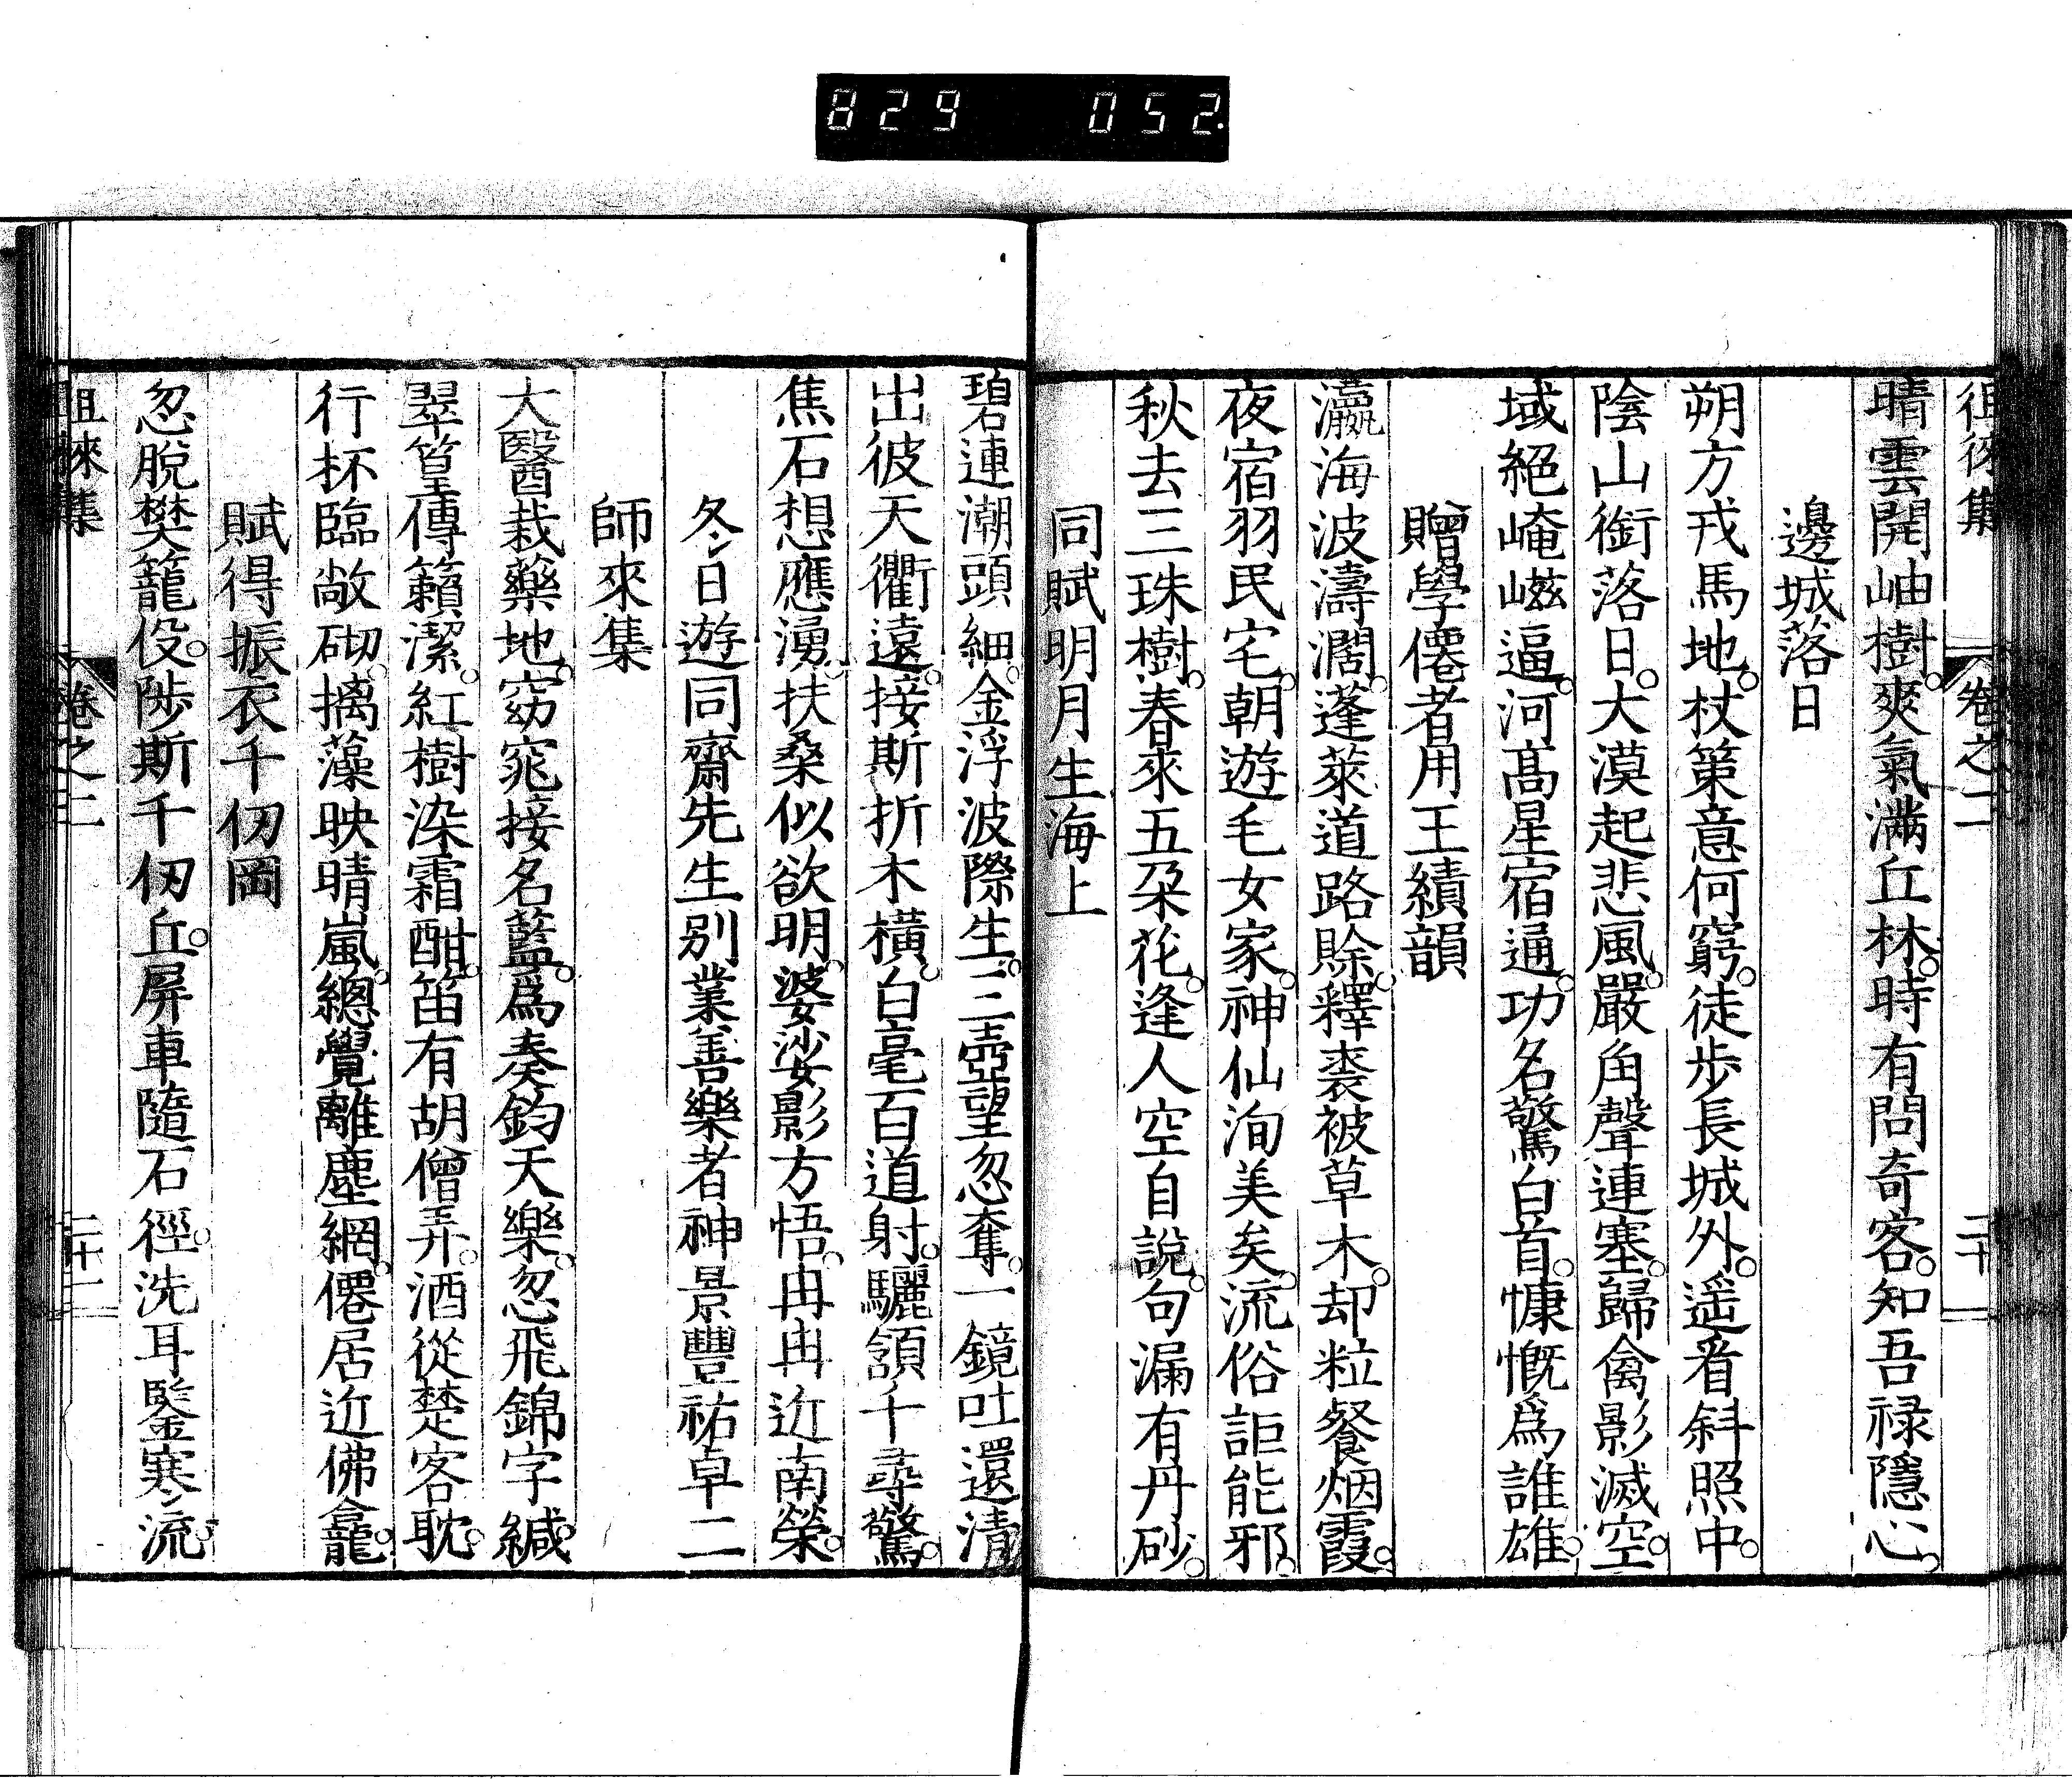 829 052.
徂徠集 卷之二 二十
晴雲開岫樹。爽氣滿丘林。時有問奇客。知吾祿隱心。
邊城落日
朔方戎馬地。杖策意何窮。徒步長城外。遥看斜照中。
陰山銜落日。大漠起悲風。嚴角聲連塞。歸禽影滅空。
域絕崦嵫逼。河髙星宿通。功名驚白首。慷慨爲誰雄。
贈學僊者用王績韻
瀛海波濤濶。蓬萊道路賒。釋裘被草木。却粒餐烟霞。
夜宿羽民宅。朝遊毛女家。神仙洵美矣。流俗詎能邪。
秋去三珠樹。春來五朶花。逢人空自說。句漏有丹砂。
同賦明月生海上
碧連潮頭細。金浮波際生。三壺望忽奪。一鏡吐還清
出彼天衢遠。接斯折木橫。白毫百道射。驪頷千尋驚。
焦石想應湧。扶桑似欲明。婆娑影方悟。冉冉近南榮。
冬日遊同齋先生別業善樂者神景豐祐卓二
師來集
大醫栽藥地。窈窕接名藍。爲奏鈞天樂。忽飛錦字緘。
翠篁傳籟潔。紅樹染霜酣。笛有胡僧弄。酒從楚客耽。
行杯臨敞砌。摛藻映晴嵐。總覺離塵網。僊居近佛龕。
賦得振衣千仞岡
忽脫樊籠役。陟斯千仞丘。屏車隨石徑。洗耳鑒寒流。
徂徠集 卷之二 二十一